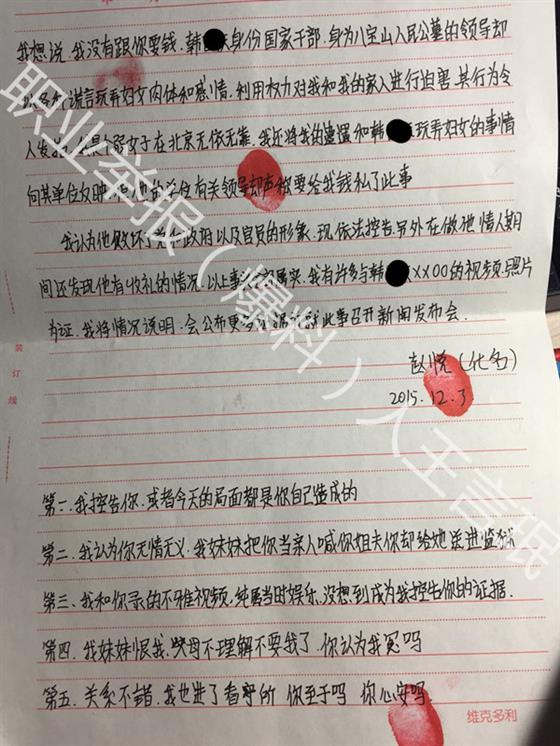 我想说.我没有跟你要钱.韩 身份国家干部.身为八宝山人民公墓的领导却
谎言玩弄妇女肉体和感情.利用权力对我和我的家人进行迫害.其行为令
人发 弱女子在北京无依无靠.我还将我的遭遇和韩 玩弄妇女的事情
向其单位反映 有关领导却声称要给我钱私了此事
我认为他败坏了 政府以及官员的形象.现依法控告.另外在做他情人期
间还发现他有收礼的情况.以上 属实.我有许多与韩 XXOO的视频.照片
为证.我将情况说明.会公布更多 此事召开新闻发布会.
赵悦(化名)
2015.12.3
装订线
第一.我控告你.或者今天的局面都是你自己造成的
第二.我认为你无情无义.我妹妹把你当亲人喊你姐夫你却给她送进监狱
第三.我和你录的不雅视频.纯属当时娱乐.没想到成为我控告你的证据.
第四.我妹妹恨我.父母不理解不要我了.你认为我冤吗
第五.关系不错.我也进了看守所 你至于吗 你心安吗.
维克多利
职业举报(爆料)人王言珉